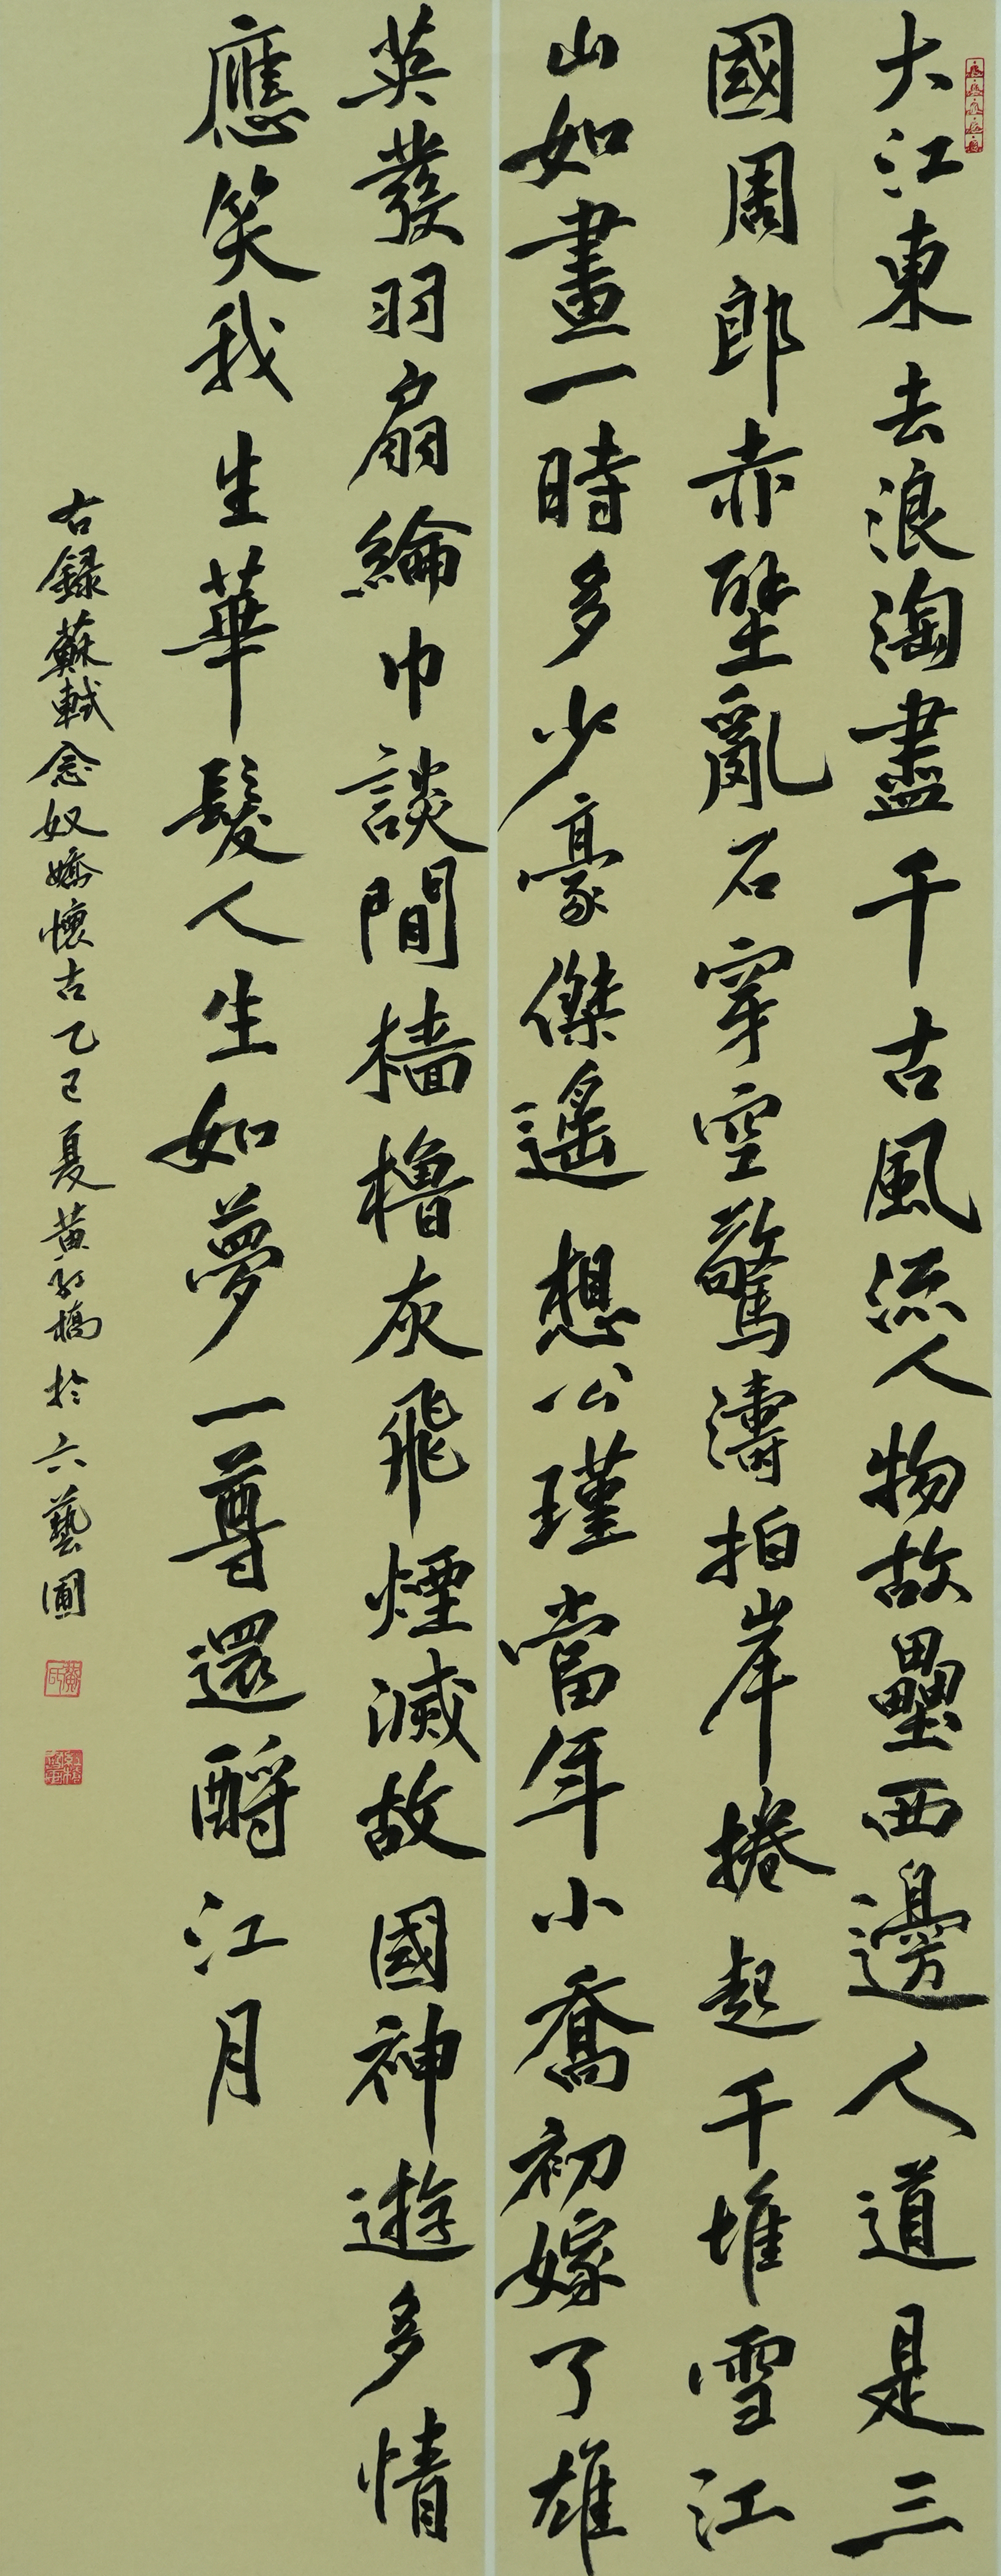 大江東去浪淘盡千古風流人物故壘西邊人道是三
國周郎赤壁亂石穿空驚濤拍岸捲起千堆雪江
山如畫一時多少豪傑遙想公瑾當年小喬初嫁了雄
英發羽扇綸巾談間檣櫓灰飛煙滅故國神遊多情
應笑我生華髮人生如夢一尊還酹江月
右録蘇軾念奴嬌懷古乙巳夏黄橋於六藝圃